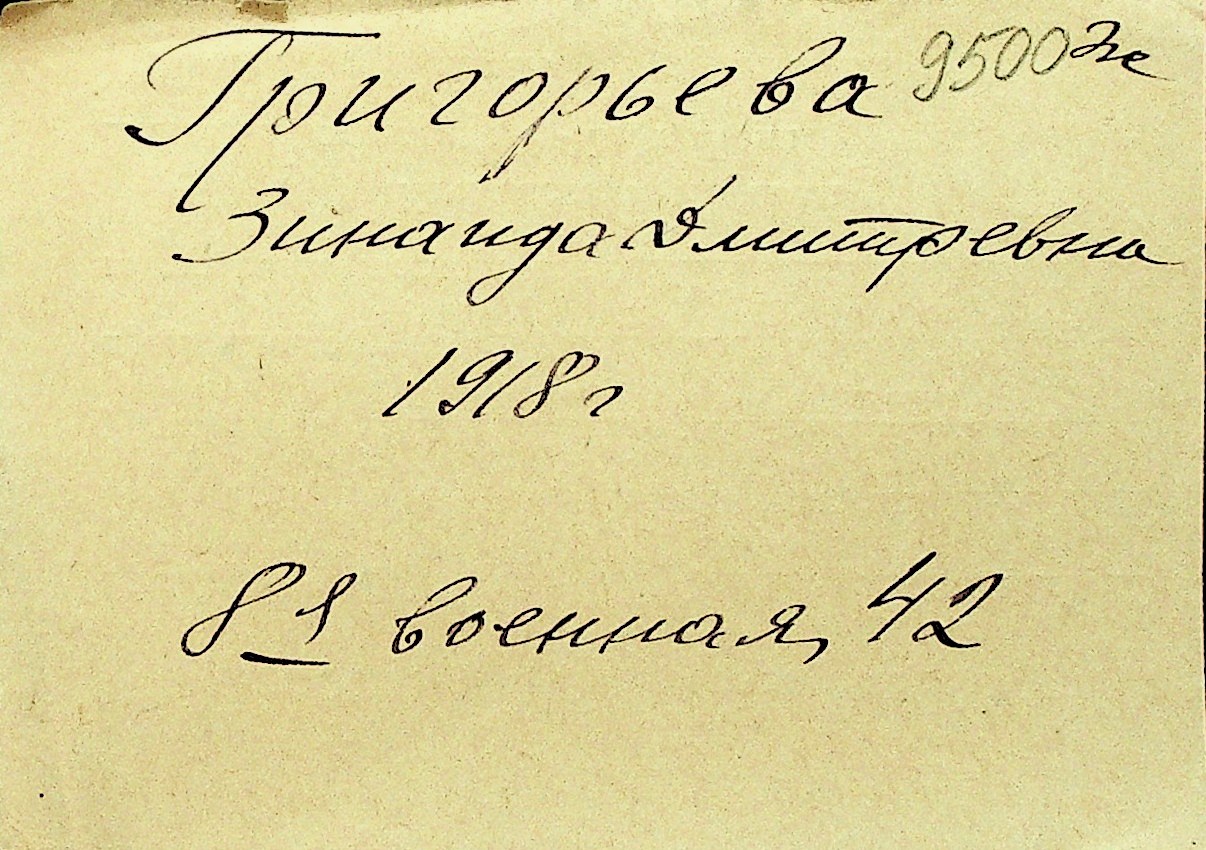 Григорьева 9500
Зинаида Дмитревна
1918 г
8я военная, 42